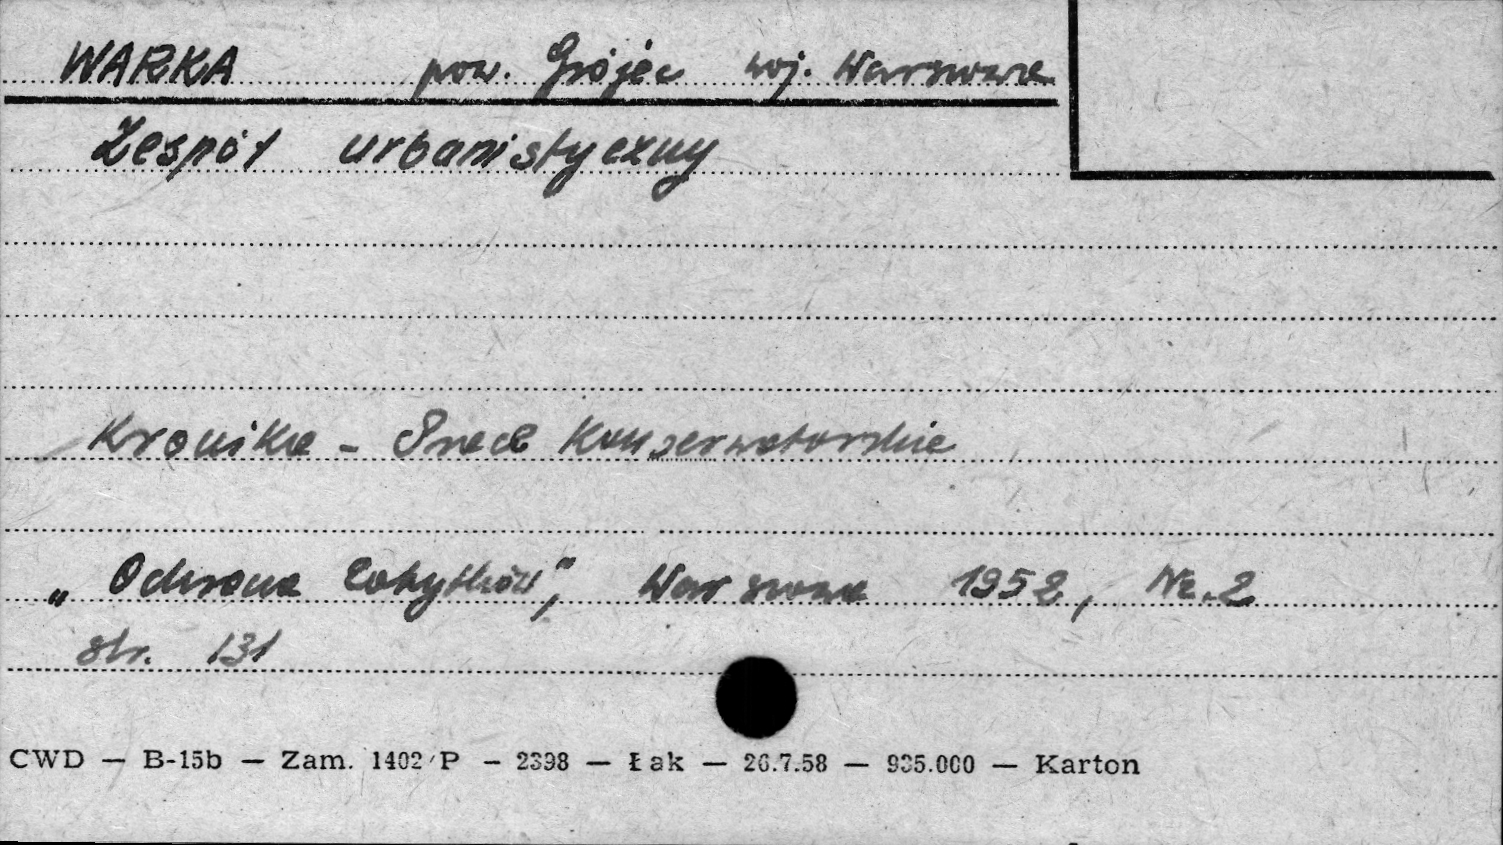 WARKA pow. Grójec woj. Warszawa
Zespół urbanistyczny
Kronika - Prace Konserwatorskie
„Ochrona Zabytków", Warszawa 1952, Nr. 2
str. 131
CWD — B-15b — Zam. 1402/P — 2398 — Łak — 26.7.58 — 935.000 — Karton